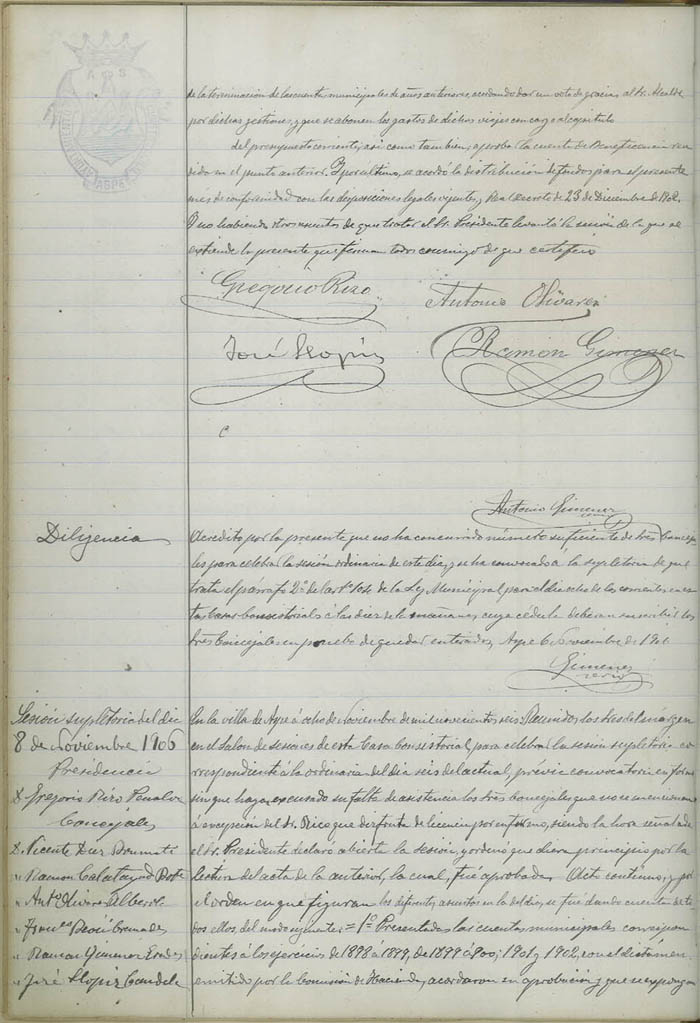 de la terminación de las cuentas municipales de años anteriores, acordando dar un voto de gracias al Sr. Alcalde
por dichas gestiones, y que se abonen los gastos de dichos viajes con cargo al capítulo
del presupuesto corriente; así como también, aprobar la cuenta de Beneficencia ren
dida en el punto anterior. Y por último, se acordó la distribución de fondos para el presente
mes de conformidad con las disposiciones legales vigentes, y Real Decreto de 23 de Diciembre de 1902.
Y no habiendo otros asuntos de que tratar el Sr. Presidente levantó la sesión de la que se
extiende la presente que firman todos conmigo de que certifico
Gregorio Rizo
Antonio Olivares
José Llopis
Ramón Gimenez
Antonio Gimenez
Diligencia
Acredito por la presente que no ha concurrido número suficiente de Sres Conceja
les para celebrar la sesión ordinaria de este día, y se ha convocado a la supletoria de que
trata el párrafo 2º del artº 104 de la Ley Municipal para el día ocho de los corrientes en es
tas Casas Consistoriales á las diez de la mañana, cuya cédula deberán suscribir los
Sres Concejales en prueba de quedar enterados, Aspe 6 Noviembre de 1906
Gimenez
srio
Sesión supletoria del día
8 de Noviembre 1906
Presidencia
D. Gregorio Rizo Penalva
Concejales
D. Vicente Diez
" Ramon Calatayud
" Antº Olivares Alberola
" Franco
" Ramon Gimenez
" José Llopis Candela
En la villa de Aspe á ocho de Noviembre de mil novecientos seis. Reunidos los Sres del márgen
en el Salon de sesiones de esta Casa Consistorial, para celebrar la sesión supletoria co
rrespondiente á la ordinaria del día seis del actual, prévia convocatoria en forma
sin que hayan excusado su falta de asistencia los Sres Concejales que no se mencionan
á excepción del Sr. Rico que disfruta de licencia por enfermo, siendo la hora señalada
el Sr. Presidente declaró abierta la sesión, y ordenó que diera principio por la
lectura del acta de la anterior, la cual, fué aprobada. Acto continuo, y por
el orden en que figuran los diferentes asuntos en la del día, se fué dando cuenta de to
dos ellos, del modo siguiente = 1º Presentadas las cuentas municipales correspon
dientes á los ejercicios de 1898 á 1899, de 1899 á 900; 1901 y 1902, con el dictámen
emitido por la Comisión de Hacienda, acordaron su aprobación, y que se expongan